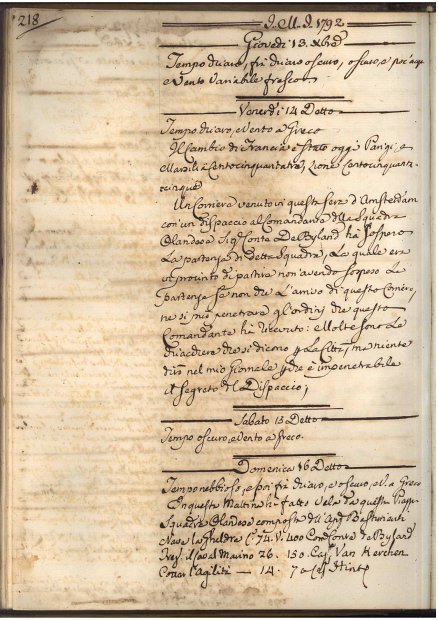 218
J. M. J. 1792
Giovedì 13. Xbre
Tempo chiaro, fri chiaro oscuro, oscuro, e poc'aqu
e Vento Variabile fresco
Venerdì 14 Detto
Tempo chiaro, e Vento a Greco
Il Cambio di Francia è stato oggi Parigi, e
Marsilia Centocinquantatrè, Lione Centocinquanta-
cinque
Un Coriere venuto in questa sera d'Amsterdam
con un dispaccio al Comandante della Squadra
Olandese Sig. Conte De Byland hà sospeso
La partenza di detta Squadra, La quale era
in procinto di partire non avendo sospeso La
Partenza se non che L'arivo di questo Coriere,
ne si può penetrare gl'ordini che questo
Comandante hà ricevuto: Molte sono Le
chiachere che si dicono La Città, ma niente
dirò nel mio Giornale è impenetrabile
il segreto del Dispaccio,
Sabato 15 Detto
Tempo oscuro, e Vento a Greco.
Domenica 16 Detto
Tempo nebbioso, e poi fri chiaro, e oscuro, e a Greco
In questa Mattina hà fatto Vela da questa
Squadra Olandese composta
Nave C. 74. V. 400 Conte de Byland
Marino 26. 150 Cap. Van Kerchen
L'Agiliti — 14. 70